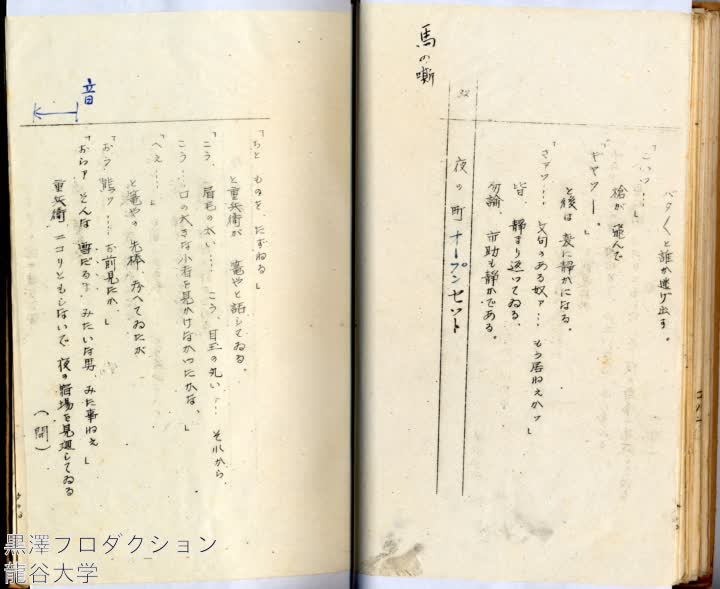 バタ〱と誰か逃げ出す。
「こいつ…」
槍が飛んで
「キャッー。」
と後は妻に静かになる。
「さァッ…文句のある奴ァ…もう居ねえかッ」
皆、静まり返つてゐる。
勿論、市助も静かである。
32
夜の町 オープンセット
馬の嘶
「ちと ものを、たずねる」
と重兵衛が 竜やと話してゐる。
「こう、眉毛の太い…こう、目玉の丸い…それから
こう…口の大きな小者を見かけなかつたかな。」
「へえ…」
と竜やの先棒、考へてゐたが
「おう、熊ッ…お前見たか」
「おらァ そんな みたいな男、みた事ねえ」
重兵衛、ニコリともしないで 夜の宿場を見廻してゐる
(開)
音
黒澤プロダクション
龍谷大学